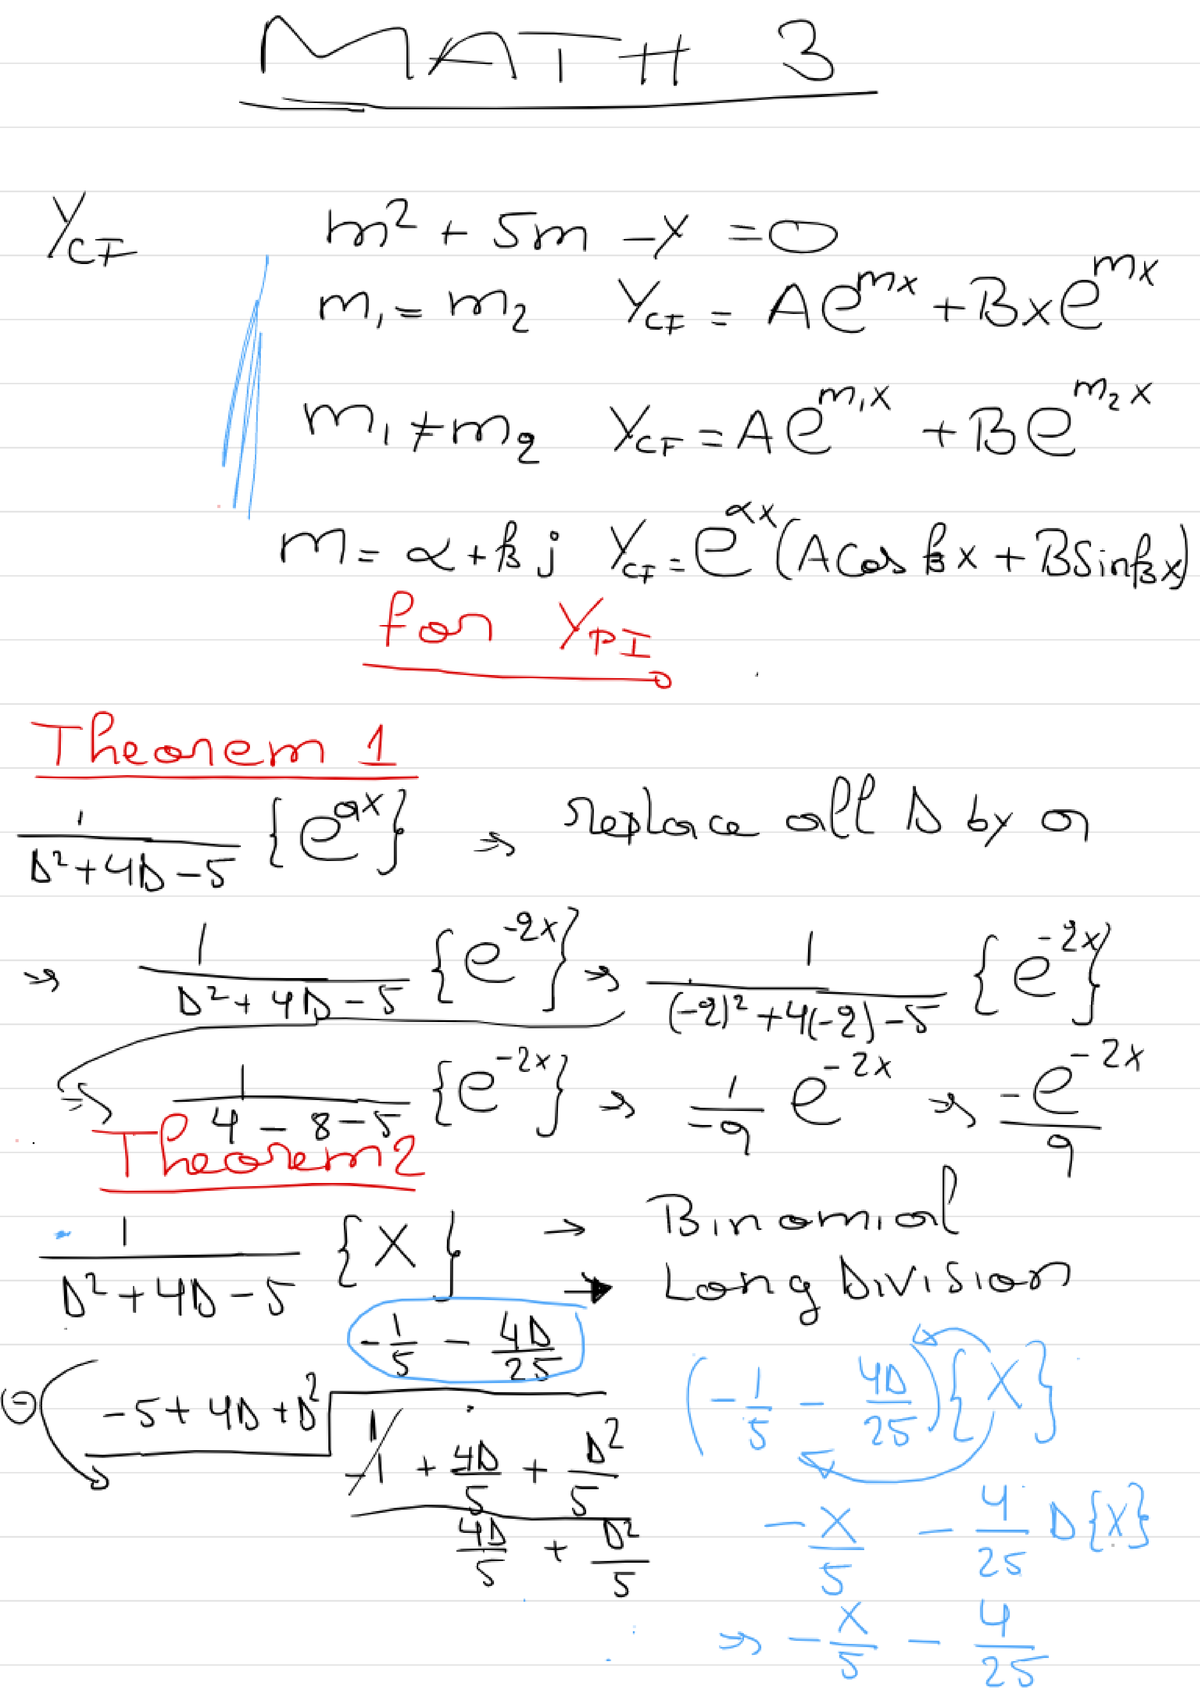 MATH 3
Y_CF m² + 5m - y = 0
m₁ = m₂ Y_CF = Ae^{mx} + Bxe^{mx}
m₁ ≠ m₂ Y_CF = Ae^{m₁x} + Be^{m₂x}
m = α + βj Y_CF = e^{αx}(A cos βx + B sin βx)
for Y_PI
Theorem 1
1/(D² + 4D - 5) {e^{ax}} ⇒ replace all D by a
⇒ 1/(D² + 4D - 5) {e^{-2x}} ⇒ 1/((-2)² + 4(-2) - 5) {e^{-2x}}
⇒ 1/(4 - 8 - 5) {e^{-2x}} ⇒ 1/-9 e^{-2x} ⇒ -e^{-2x}/9
Theorem 2
1/(D² + 4D - 5) {x} → Binomial
→ Long Division
-1/5 - 4D/25
⊖ -5 + 4D + D² | 1
-1 + 4D/5 + D²/5
4D/5 + D²/5
(-1/5 - 4D/25){x}
-x/5 - 4/25 D{x}
⇒ -x/5 - 4/25